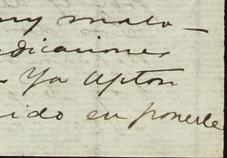 muy malo
dicaciones
Ya Upton
ido en ponerle